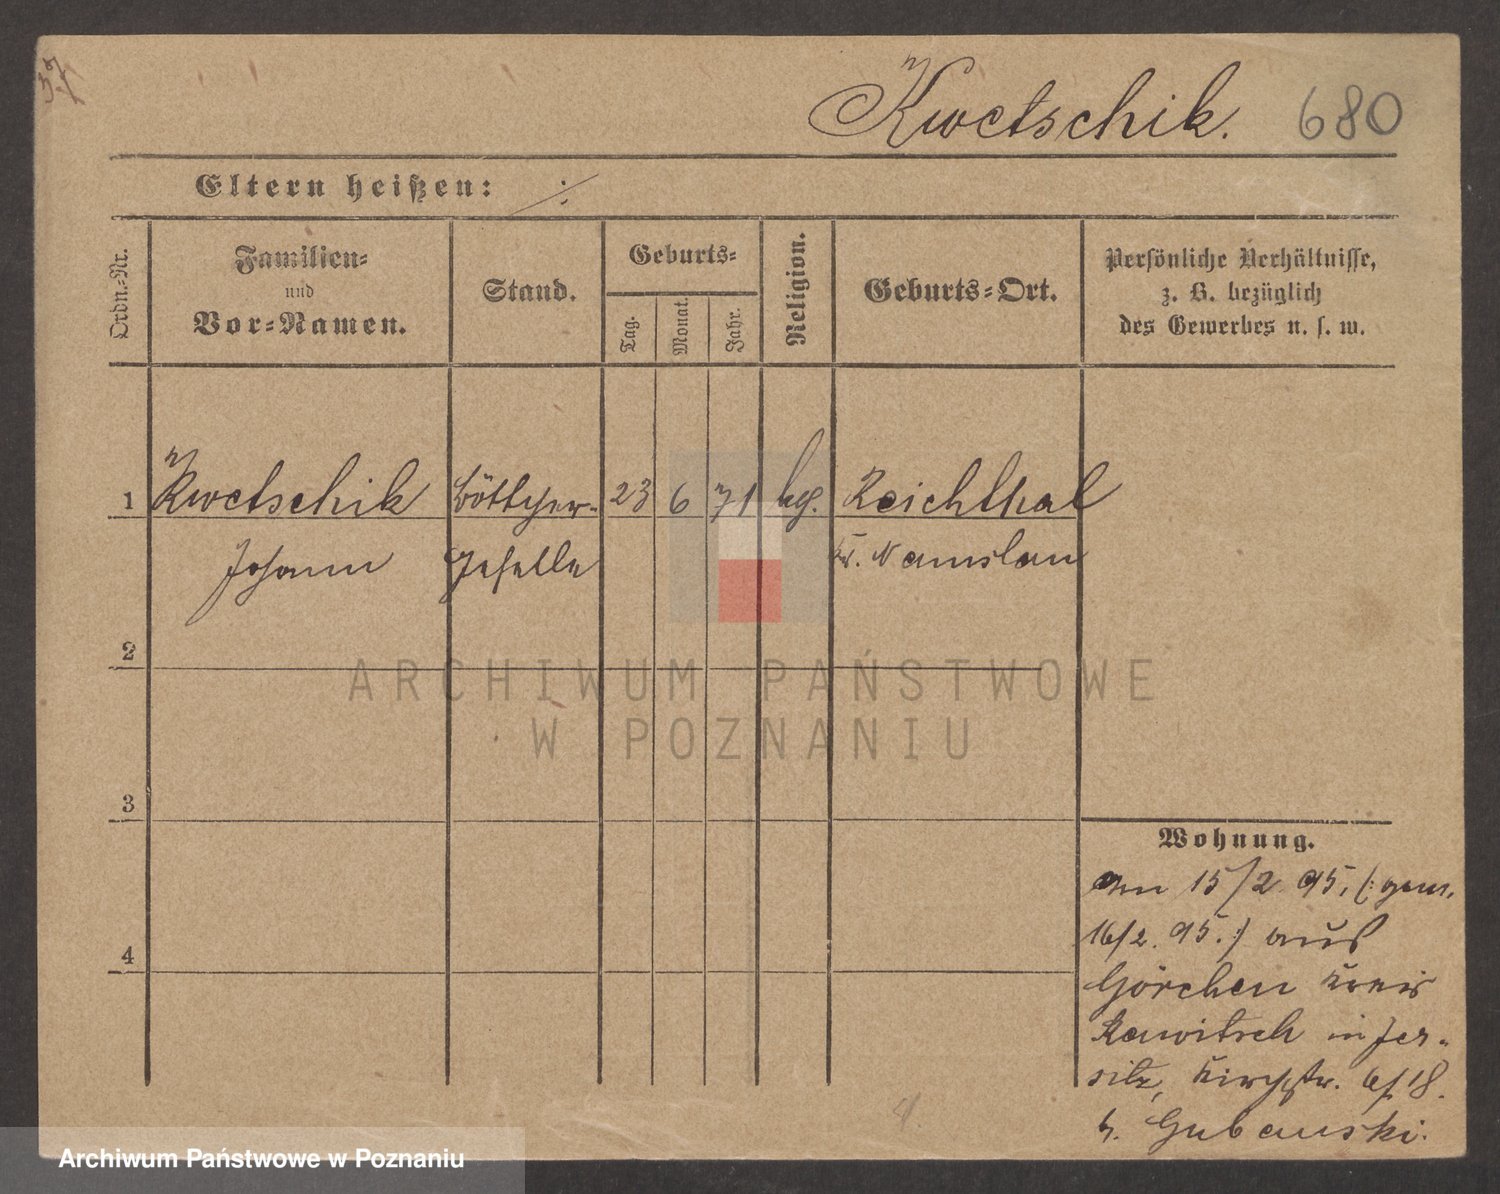 Kwetschik. 680
Eltern heißen: ./.
Ordn.-Nr.
Familien-
und
Vor-Namen.
Stand.
Geburts-
Tag.
Monat.
Jahr.
Religion.
Geburts-Ort.
Persönliche Verhältnisse,
z. B. bezüglich
des Gewerbes u. s. w.
1 Kwetschik Böttcher- 23 6 71 Reichthal
Johann Geselle Kr. Namslau
2
3
4
Wohnung.
am 15/2 95. (: gem.
16/2. 95. :) aus
Görchen Kreis
Rawitsch in Jer-
sitz, Kirchstr.
b. Gubanski.
ARCHIWUM PAŃSTWOWE
W POZNANIU
Archiwum Państwowe w Poznaniu